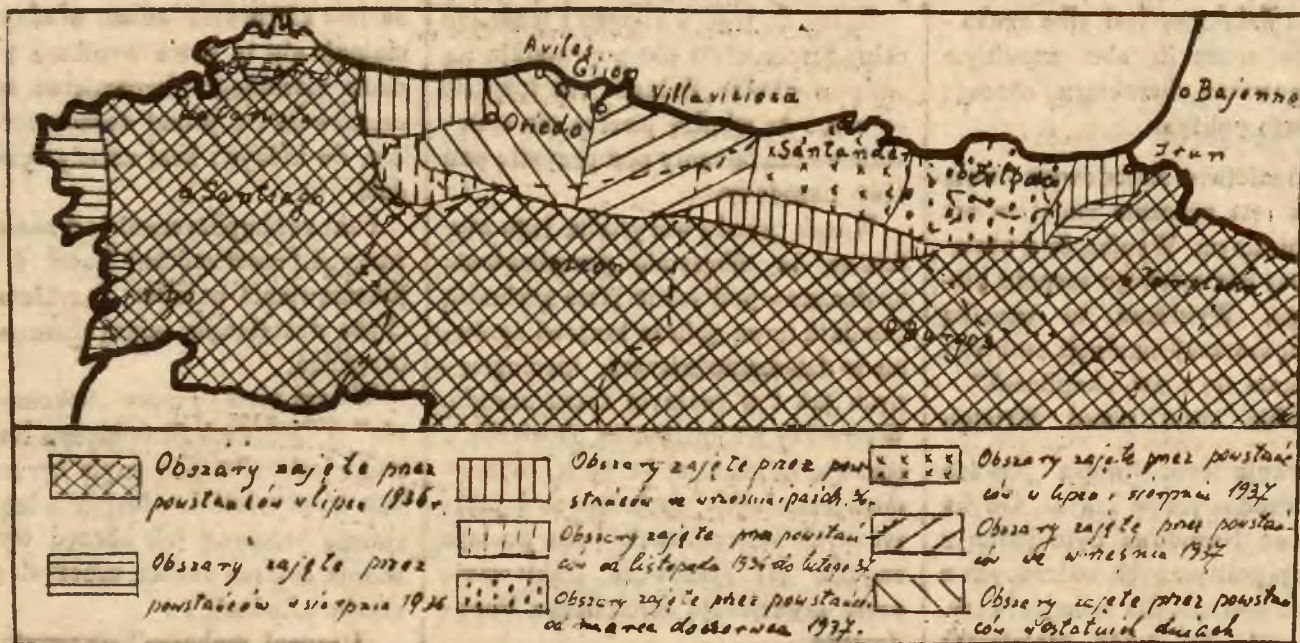 Aviles
Gijon
Villaviciosa
Oviedo
Santander
Bilbao
o Bajonne
Irun
Santiago
Leon
Burgos
Obszary zajęte przez
powstańców w lipcu 1936 r.
Obszary zajęte przez
powstańców w sierpniu 1936
Obszary zajęte przez pow-
stańców we wrześniu i paźdz. 36 r.
Obszary zajęte przez powstań-
ców od listopada 1936 do lutego 37
Obszary zajęte przez powstańc.
od marca do czerwca 1937.
Obszary zajęte przez powstań-
ców w lipcu i sierpniu 1937
Obszary zajęte przez powstań-
ców we wrześniu 1937
Obszary zajęte przez powstań-
ców w ostatnich dniach